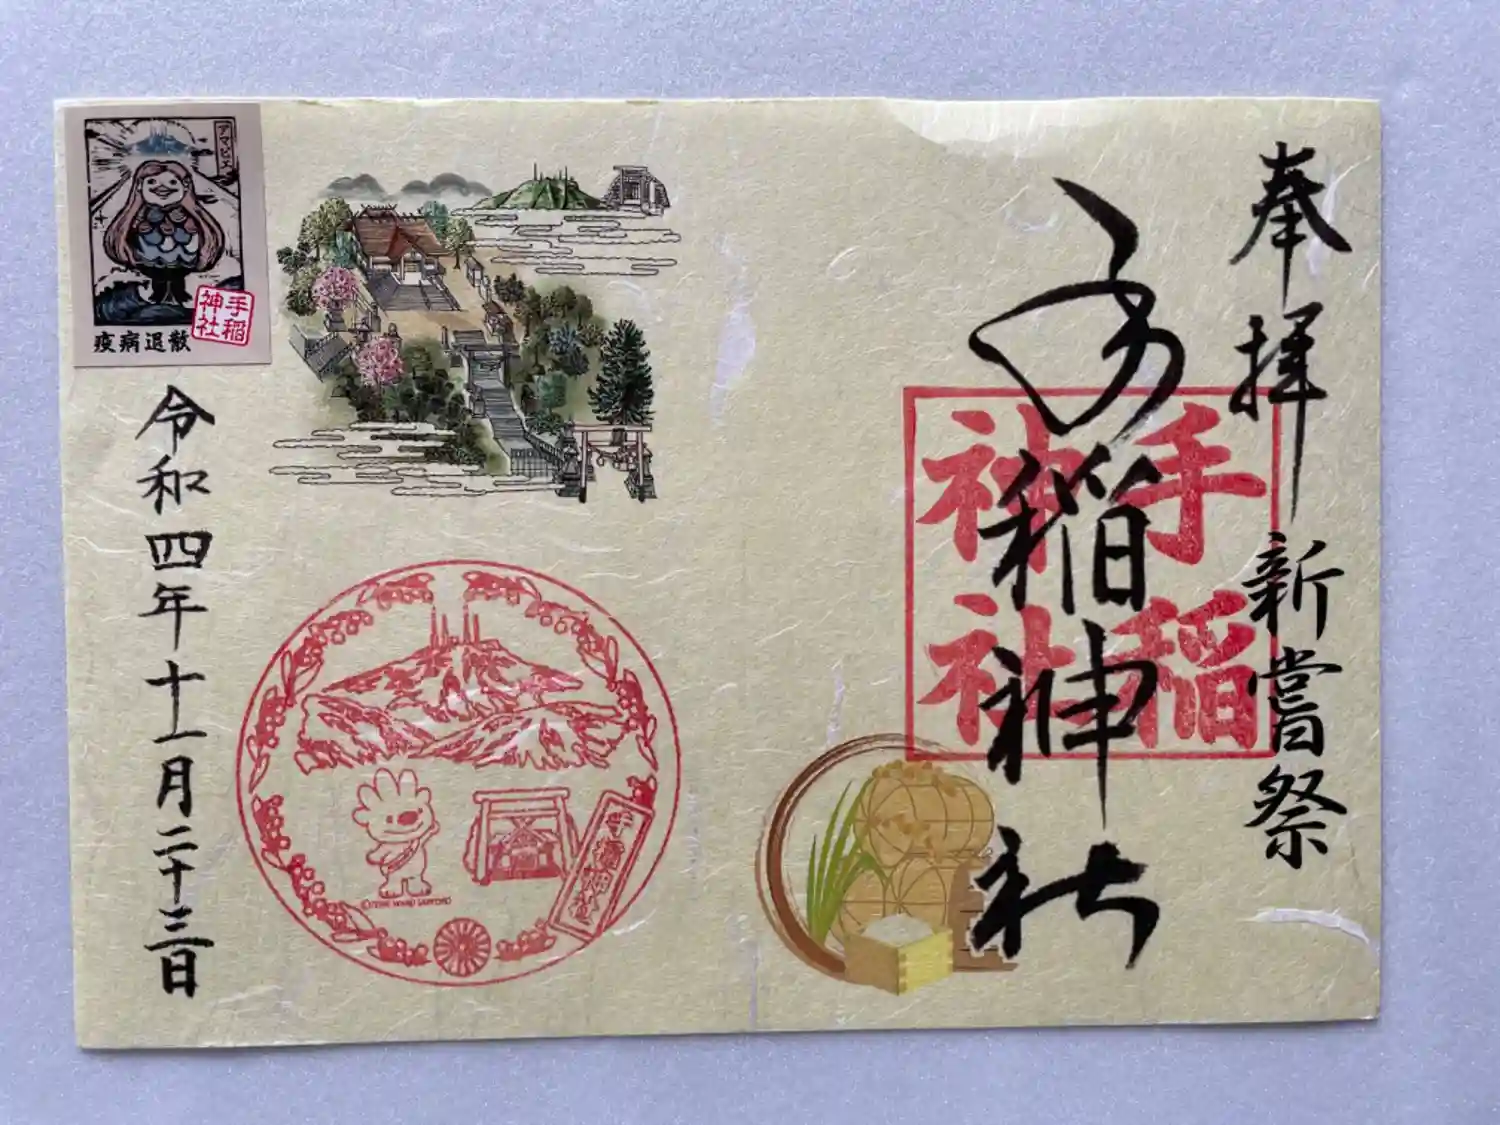 奉拝
新嘗祭
手稲神社
手稲
神社
アマビエ
疫病退散
手稲
神社
令和四年十一月二十三日
手稲神社
©TEINE WARD SAPPORO